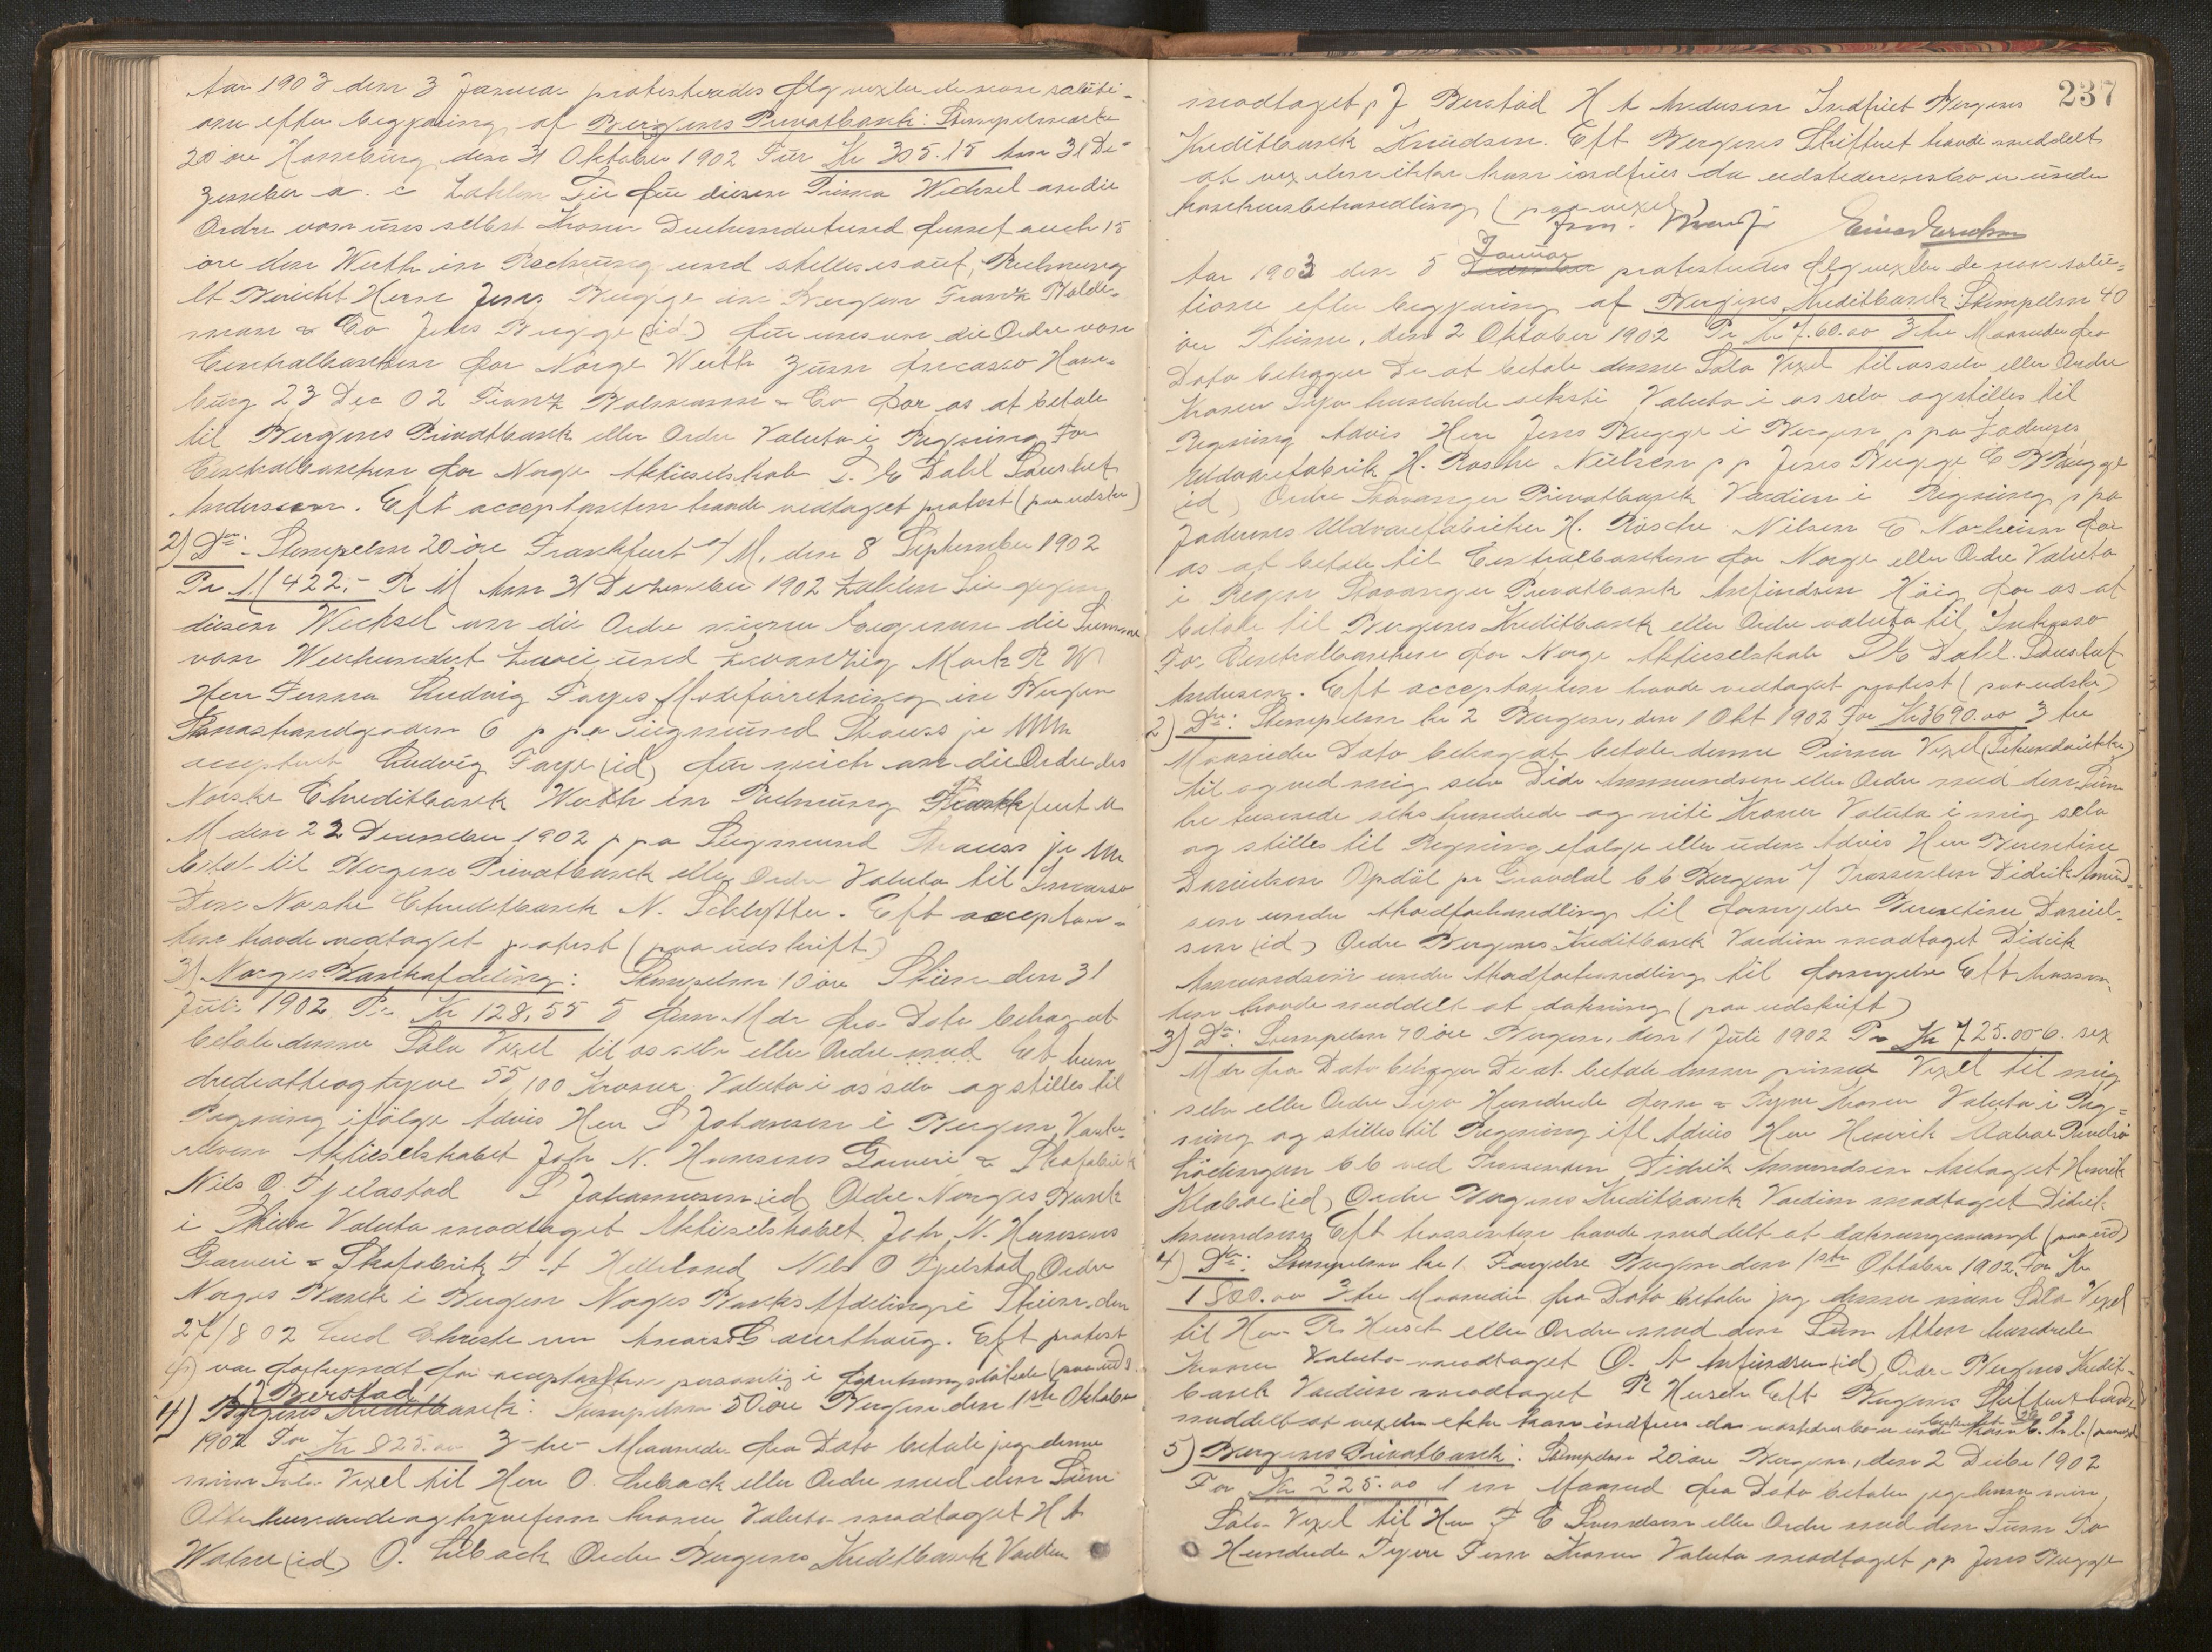 Aar 1903 den 3 Januar protesteredes flg vexler de non soluti-
one efter begjæring af Bergens Privatbank: Stempelmærke
20 øre Hamburg den 31 Oktober 1902 Für Kr 305.15 Am 31 De-
zember a. c zahlen Sie für diesen Prima Wechsel an die
Ordre von uns selbst Kronen Dreihundertund fünf auch 15
øre den Werth in Rechnung und stellen es auf Rechnung
lt Bericht Herrn Jens Brügge in Bergen Franz
man & Co Jens Brügge (id) für uns an die Ordre von
Centralbanken for Norge Werth zum Incasso Ham-
burg 23 Dec 02 Franz & Co For os at betale
til Bergens Privatbank eller Ordre Valuta i Regning For
Centralbanken for Norge Aktieselskab Dahl
Andersen. Eft acceptanten havde vedtaget protest (paa udskr)
2) Do: Stempelm 20 øre Frankfurt a/M, den 8 September 1902
Pr M 422.- R M Am 31 Dezember 1902 zahlen Sie gegen
diesen Wechsel an die Ordre meiner Eigenen die Summe
von Vierhundert zwei und zwanzig Mark R W
Herr Firma Ludvig Fayes Modeforretning in Bergen
6 p pa Siegmund Strauss jr
acceptirt Ludvig Faye (id) für mich an die Ordre des
Norske Creditbank Werth in Rechnung Frankfurt a
M den 22 December 1902 p pa Siegmund Strauss jr
betal til Bergens Privatbank eller Ordre Valuta til Incasso
Den Norske Creditbank N. Schlytter. Eft acceptan-
ten havde vedtaget protest (paa udskrift)
3) Norges Bankafdeling: Stempelm 10 øre Skien den 31
Juli 1902 Pr Kr 128,55 5 fem Mdr fra Dato behag at
betale denne Sola Vexel til os selv eller Ordre med Et hun
drede otte og tyve 55/100 Kroner Valuta i os selv og stilles til
Regning ifølge Advis Herr S Johansen i Bergen
Aktieselskabet Joh N. Hansens Garveri & Skofabrik
Nils O. Fjelastad S Johannesen (id) Ordre Norges Bank
i Skien Valuta modtaget Aktieselskabet Joh. N. Hansens
Garveri & Skofabrik A Helleland Nils O Fjelstad Ordre
Norges Bank i Bergen Norges Banks Afdeling i Skien den
27/8 02 Eft protest
var forkyndt for acceptanten personlig i forretningslokalet (paa uds
4) Bergens Kreditbank: Stempelm 50 øre Bergen den 1ste Oktober
1902 For Kr 825.00 3-tre- Maaneder fra Dato betale jeg denne
min Sola Vexel til Herr O. Seback eller Ordre med den Sum
Otte hundrede og tyvefem kroner Valuta modtaget H A
Watne (id) O. Seback Ordre Bergens Kreditbank Værdien
237
modtaget p J Berstad H A Andersen Indfriet Bergens
Kreditbank Knudsen. Eft Bergens Skifteret havde meddelt
at vexelen ikke kan indfries da udstederens bo er under
konkursbehandling (paa vexel)
Aar 1903 den 5 Januar protesteredes flg vexler de non solu-
tione efter begjæring af Bergens Kreditbank: Stempelm 40
øre Thime, den 2 Oktober 1902 Pr Kr 760.00 3 tre Maaneder fra
Dato behager De at betale denne Sola Vexel til os selv eller Ordre
Kroner Syv hundrede seksti Valuta i os selv og stilles til
Regning Advis Herr Jens Brügge i Bergen p pa Jæderens
Uldvarefabrik H. Rosche Nielsen p p Jens Brügge C B Brügge
(id) Ordre Stavanger Privatbank Værdien i Regning p pa
Jæderens Uldvarefabriker H. Rosche Nilsen E Norheim for
os at betale til Centralbanken for Norge eller Ordre Valuta
i Regn Stavanger Privatbank Anfindsen Høig for os at
betale til Bergens Kreditbank eller Ordre valuta til Inkasso
For Centralbanken for Norge Aktieselskab Dahl
Andersen. Eft acceptanten havde vedtaget protest (paa udskr)
2) Do: Stempelm kr 2 Bergen, den 1 Okt 1902 For Kr 3690.00 3 tre
Maaneder Dato behag at betale denne Prima Vexel (Sekunda ikke)
til og ved mig selv Didr Amundsen eller Ordre med den Sum
tre tusende seks hundrede og niti Kroner Valuta i mig selv
og stilles til Regning ifølge eller uden Advis Herr Berentine
Danielsen Opdøl pr Gravdal bb Bergen / Trassenten Didrik Amund-
sen under Akordforhandling til fornyelse Berentine Daniel-
sen (id) Ordre Bergens Kreditbank Værdien modtaget Didrik
Amundsen under Akordforhandling til fornyelse Eft trassen
ten havde meddelt at dækning (paa udskrift)
3) Do: Stempelm 40 øre Bergen, den 1 Juli 1902 Pr Kr 725.00 6. sex
Mdr fra Dato behager De at betale denne prima Vexel til mig
selv eller Ordre Syv Hundrede fem & Tyve Kroner Valuta i Reg-
ning og stilles til Regning ifl Advis Herr Henrik
Lødingen bb ved Trassenten Didrik Amundsen Antaget Henrik
Klabou (id) Ordre Bergens Kreditbank Værdien modtaget Didrik
Amundsen Eft trassenten havde meddelt at dækningsmangl (paa ud)
4) Do: Stempelm kr 1. Fornyelse Bergen den 1ste Oktober 1902. For Kr
1800.00 3 tre Maaneder fra Dato betaler jeg denne min Sola Vexel
til Herr R. Husch eller Ordre med den Sum Atten hundrede
kroner Valuta modtaget O. A Anfindsen (id) Ordre Bergens Kredit-
bank Værdien modtaget R Husch Eft Bergens Skifteret havde
meddelt at vexelen ikke kan indfries da
5) Bergens Privatbank: Stempelm 20 øre Bergen, den 2 Decbr 1902
For Kr 225.00 1 en Maaned fra Dato betaler jeg denne min
Sola Vexel til Herr F C Svendsen eller Ordre med den Sum To
Hundrede Tyve Fem Kroner Valuta modtaget pp Jens Brügge